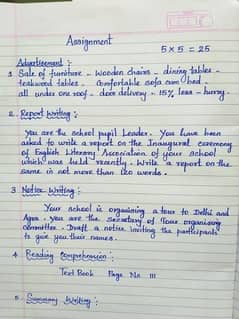 Assignment
5 x 5 = 25
Advertisement :
1. Sale of furniture - Wooden chairs - dining tables -
teakwood tables - Comfortable sofa cum bed -
all under one roof - door delivery - 15% less - hurry.
2. Report Writing :
You are the school pupil Leader. You have been
asked to write a report on the Inaugural ceremony
of English Literary Association of your school
which was held recently - Write a report on the
same in not more than 120 words.
3 Notice Writing :
Your school is organising a tour to Delhi and
Agra. You are the Secretary of Tour organising
Committee. Draft a notice inviting the participants
to give you their names.
4 Reading Comprehension :
Text Book Page No 111
5 Summary Writing :